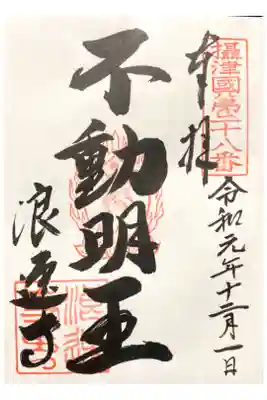 奉拝
摂津國第十八番
令和元年十二月一日
不動明王
浪速寺